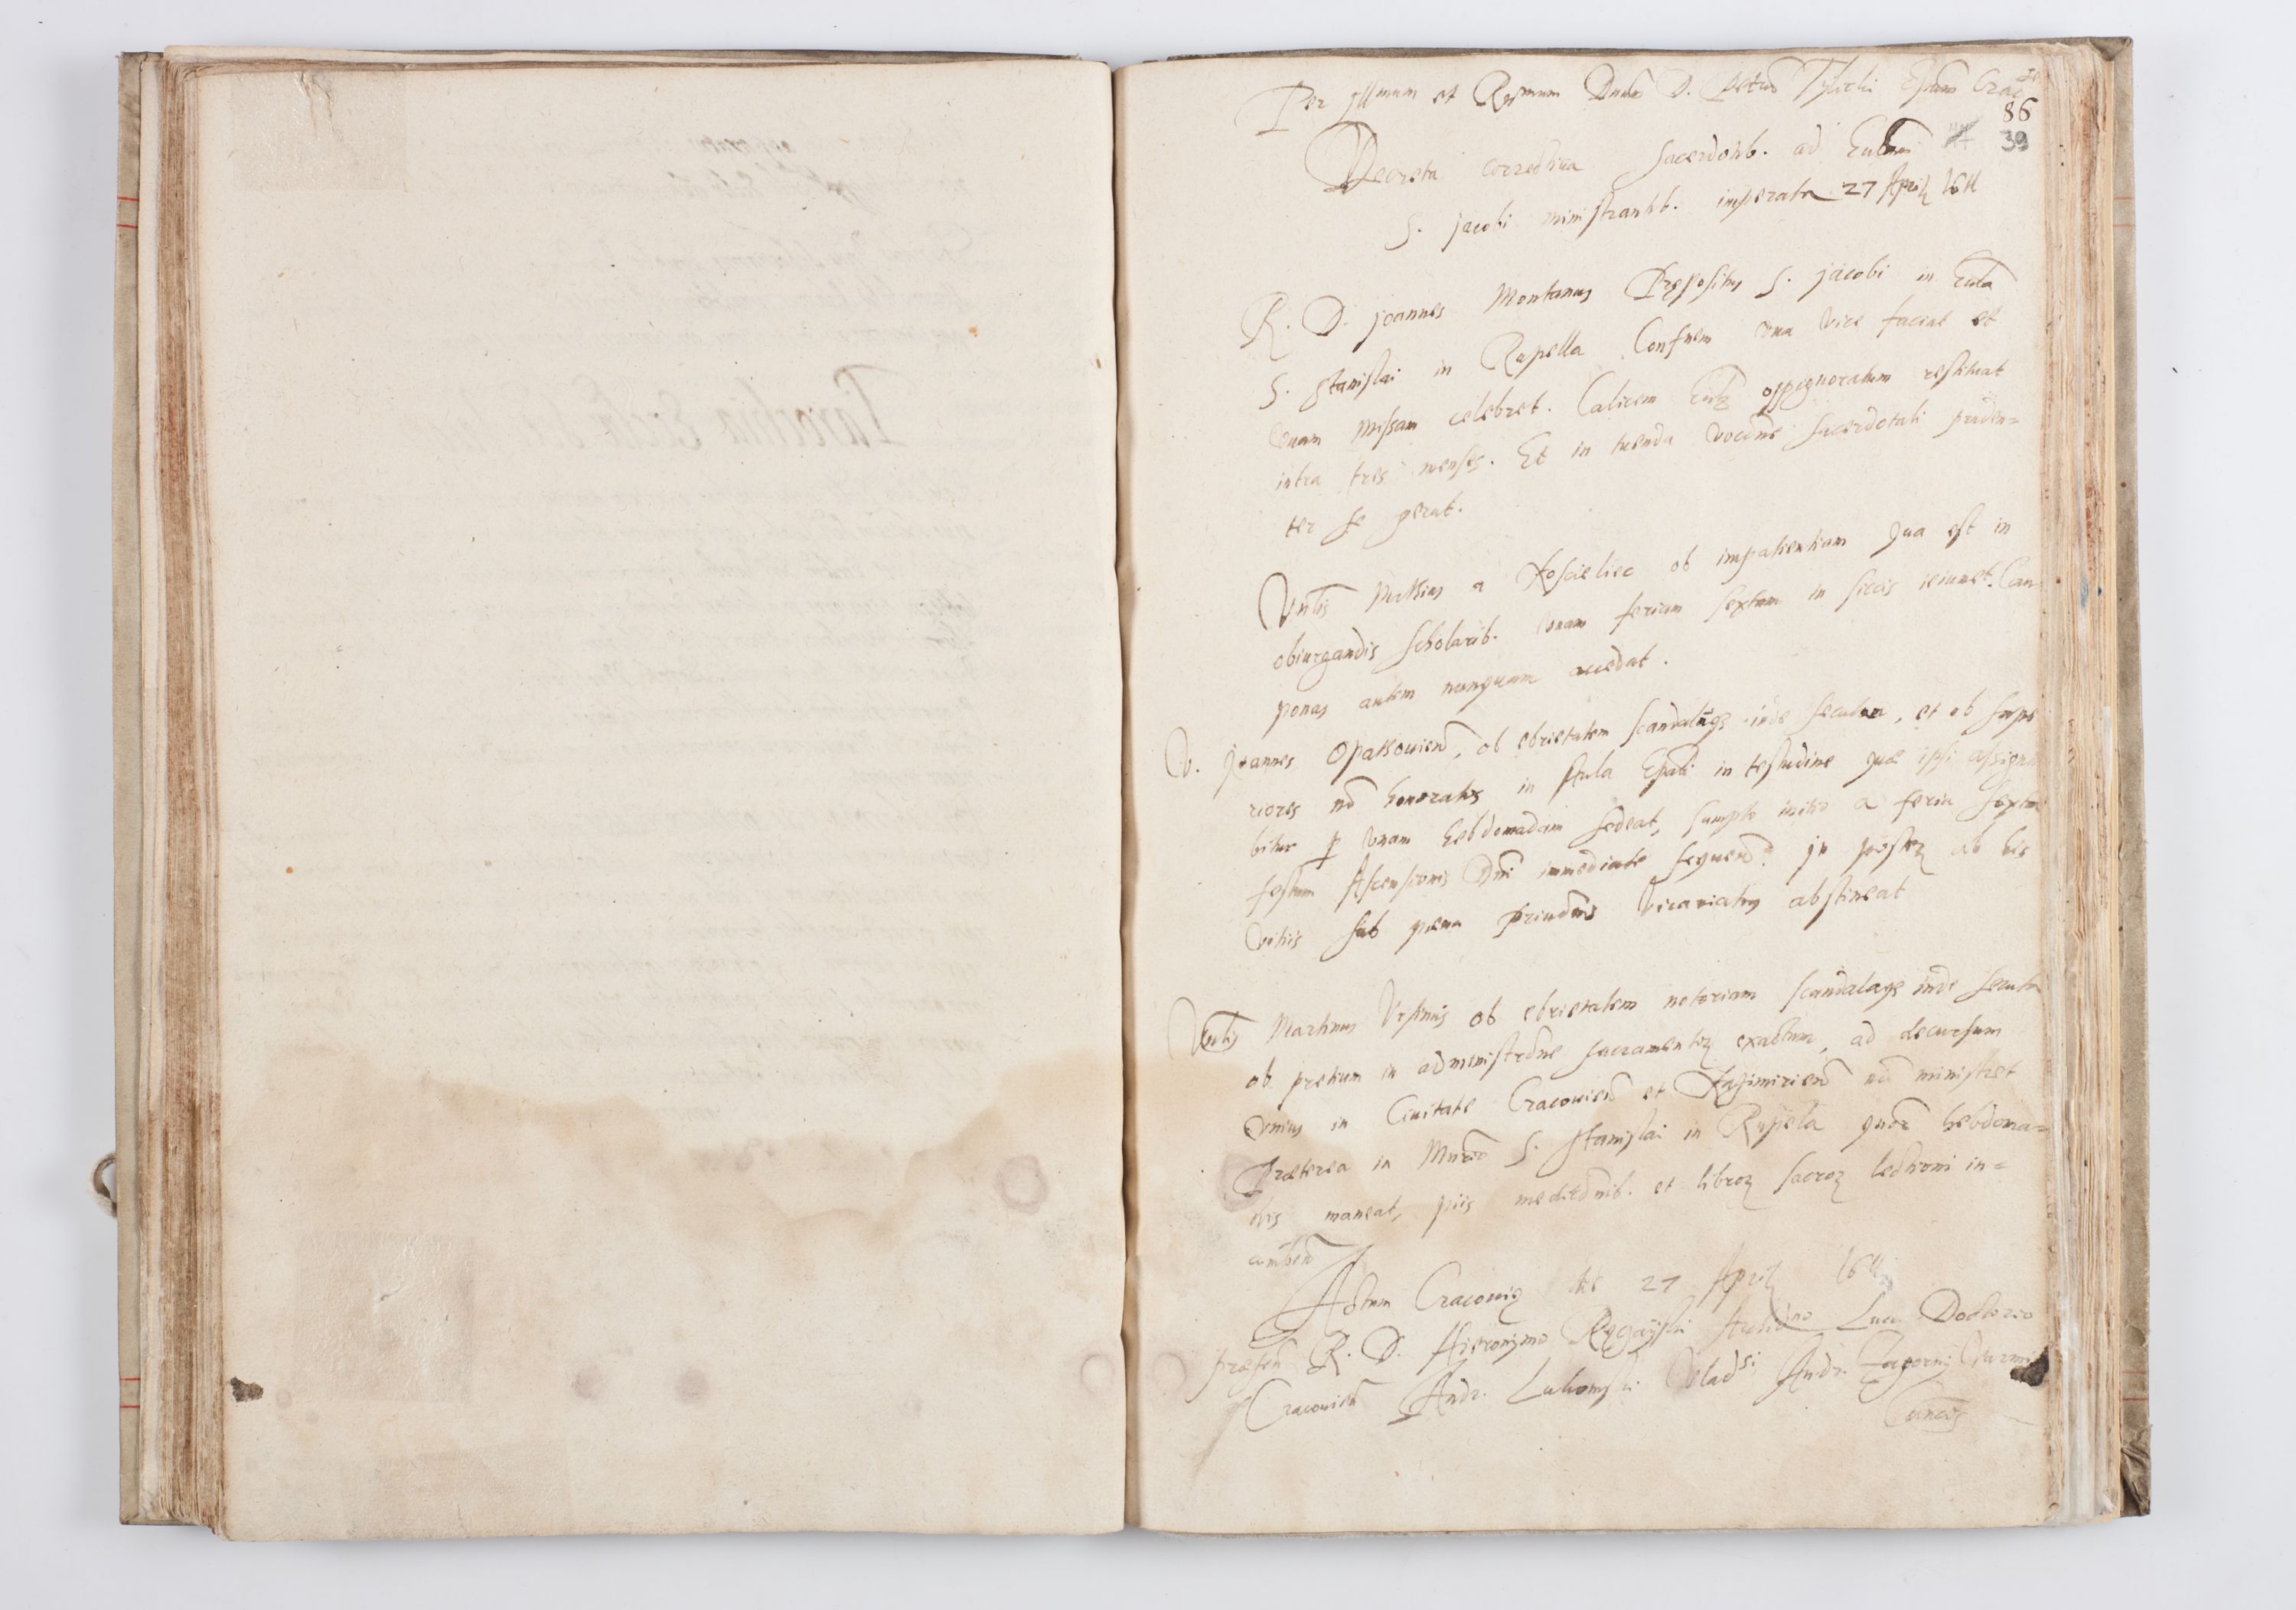 Per Illmum et Rssmum Dnum D. Petrum Tylicki Epum Crac
86
39
Decreta correctiua sacerdotib. ad Eccliam
S. Jacobi ministrantib. imperata 27 April 1611
R. D. Joannes Montanus Præpositus S. Jacobi in Eccla
S. Stanislai in Rupella Confnem una vice faciat et
unam missam celebret. Calicem oppignoratum restituat
intra tres menses. Et in tuenda vocãne sacerdotali pruden=
ter se gerat.
Vnlis Matthias a Koscielec ob impatientiam qua est in
obiurgandis scholarib. unam feriam sextam in siccis ieiunet. Cau
ponas autem nunquam accedat.
V. Joannes Opatouien, ob ebrietatem scandalaqz inde secuta, et ob supe
riores nõ honoratos in Aula Epali in testudine quæ ipsi assigna
bitur p unam hebdomadam sedeat, sumpto initio a feria sexta
festum Ascensionis Dni immediate sequen. In posterz ab his
vitiis sub pœna priuãonis Vicariatus abstineat
Vnlis Martinus Vrsinus ob ebrietatem notoriam scandalaqz inde secuta
ob pretium in administrãone sacramentorz exactum, ad decursum
in Ciuitate Cracouien et Kazimirien nõ ministret
Præterea in S. Stanislai in Rupella hebdoma=
dis maneat, piis meditãonib. et librorz sacrorz lectioni in=
cumben
Actum Cracouiæ die 27 April 1611
præsen R. D. Hieronymo Archid Doctorio
Cracouien Andr. Lukomski Andr.